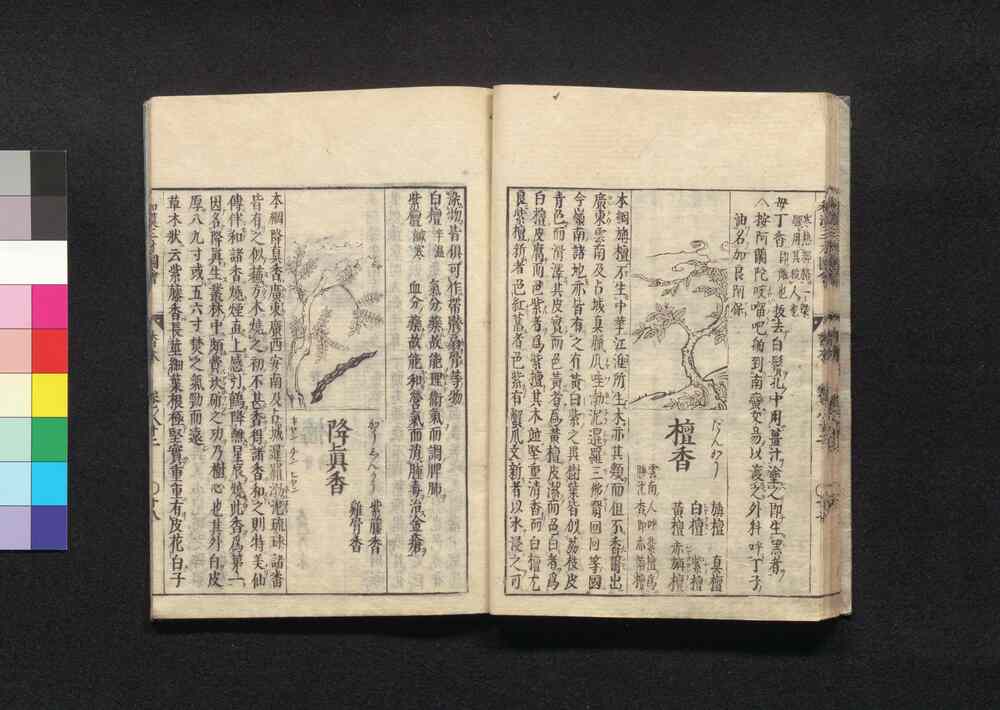 母丁香即雞也拔去白鬚孔中用薑汁塗之即生黒者
△按阿蘭陀咬𠺕吧舶到南
油名加良阿保
檀香
だんかう
旃檀 真檀
白檀 紫檀
黄檀 赤旃檀
雲南人呼紫檀爲
勝沈香即赤旃檀
本綱旃檀不生中華江淮所生木亦其類而但不香爾出
廣東雲南及占城真臘爪哇渤泥暹羅三佛齊回回等國
今嶺南諸地亦皆有之有黄白紫之異樹葉皆似荔枝皮
青色而滑澤其皮實而色黄者爲黄檀皮潔而色白者爲
白檀皮腐而色紫者爲紫檀其木並堅重清香而白檀尤
良紫檀新者色紅舊者色紫有蟹爪文新者以水浸之可
染物皆俱可作帶胯扇骨等物
白檀辛温 氣分藥故能理衞氣而調脾肺
紫檀鹹寒 血分藥故能和營氣而消腫毒治金瘡
降真香
紫藤香
雞骨香
本綱降真香廣東廣西安南及占城暹羅渤泥琉球諸番
皆有之似蘇方木燒之初不甚香得諸香和之則特美仙
傳伴和諸香燒煙直上感引鶴降醮星辰燒此香爲第一
因名降真生叢林中頗費坎斫之功乃樹心也其外白皮
厚八九寸或五六寸焚之氣勁而遠
草木狀云紫藤香長莖細葉根極堅實重重有皮花白子